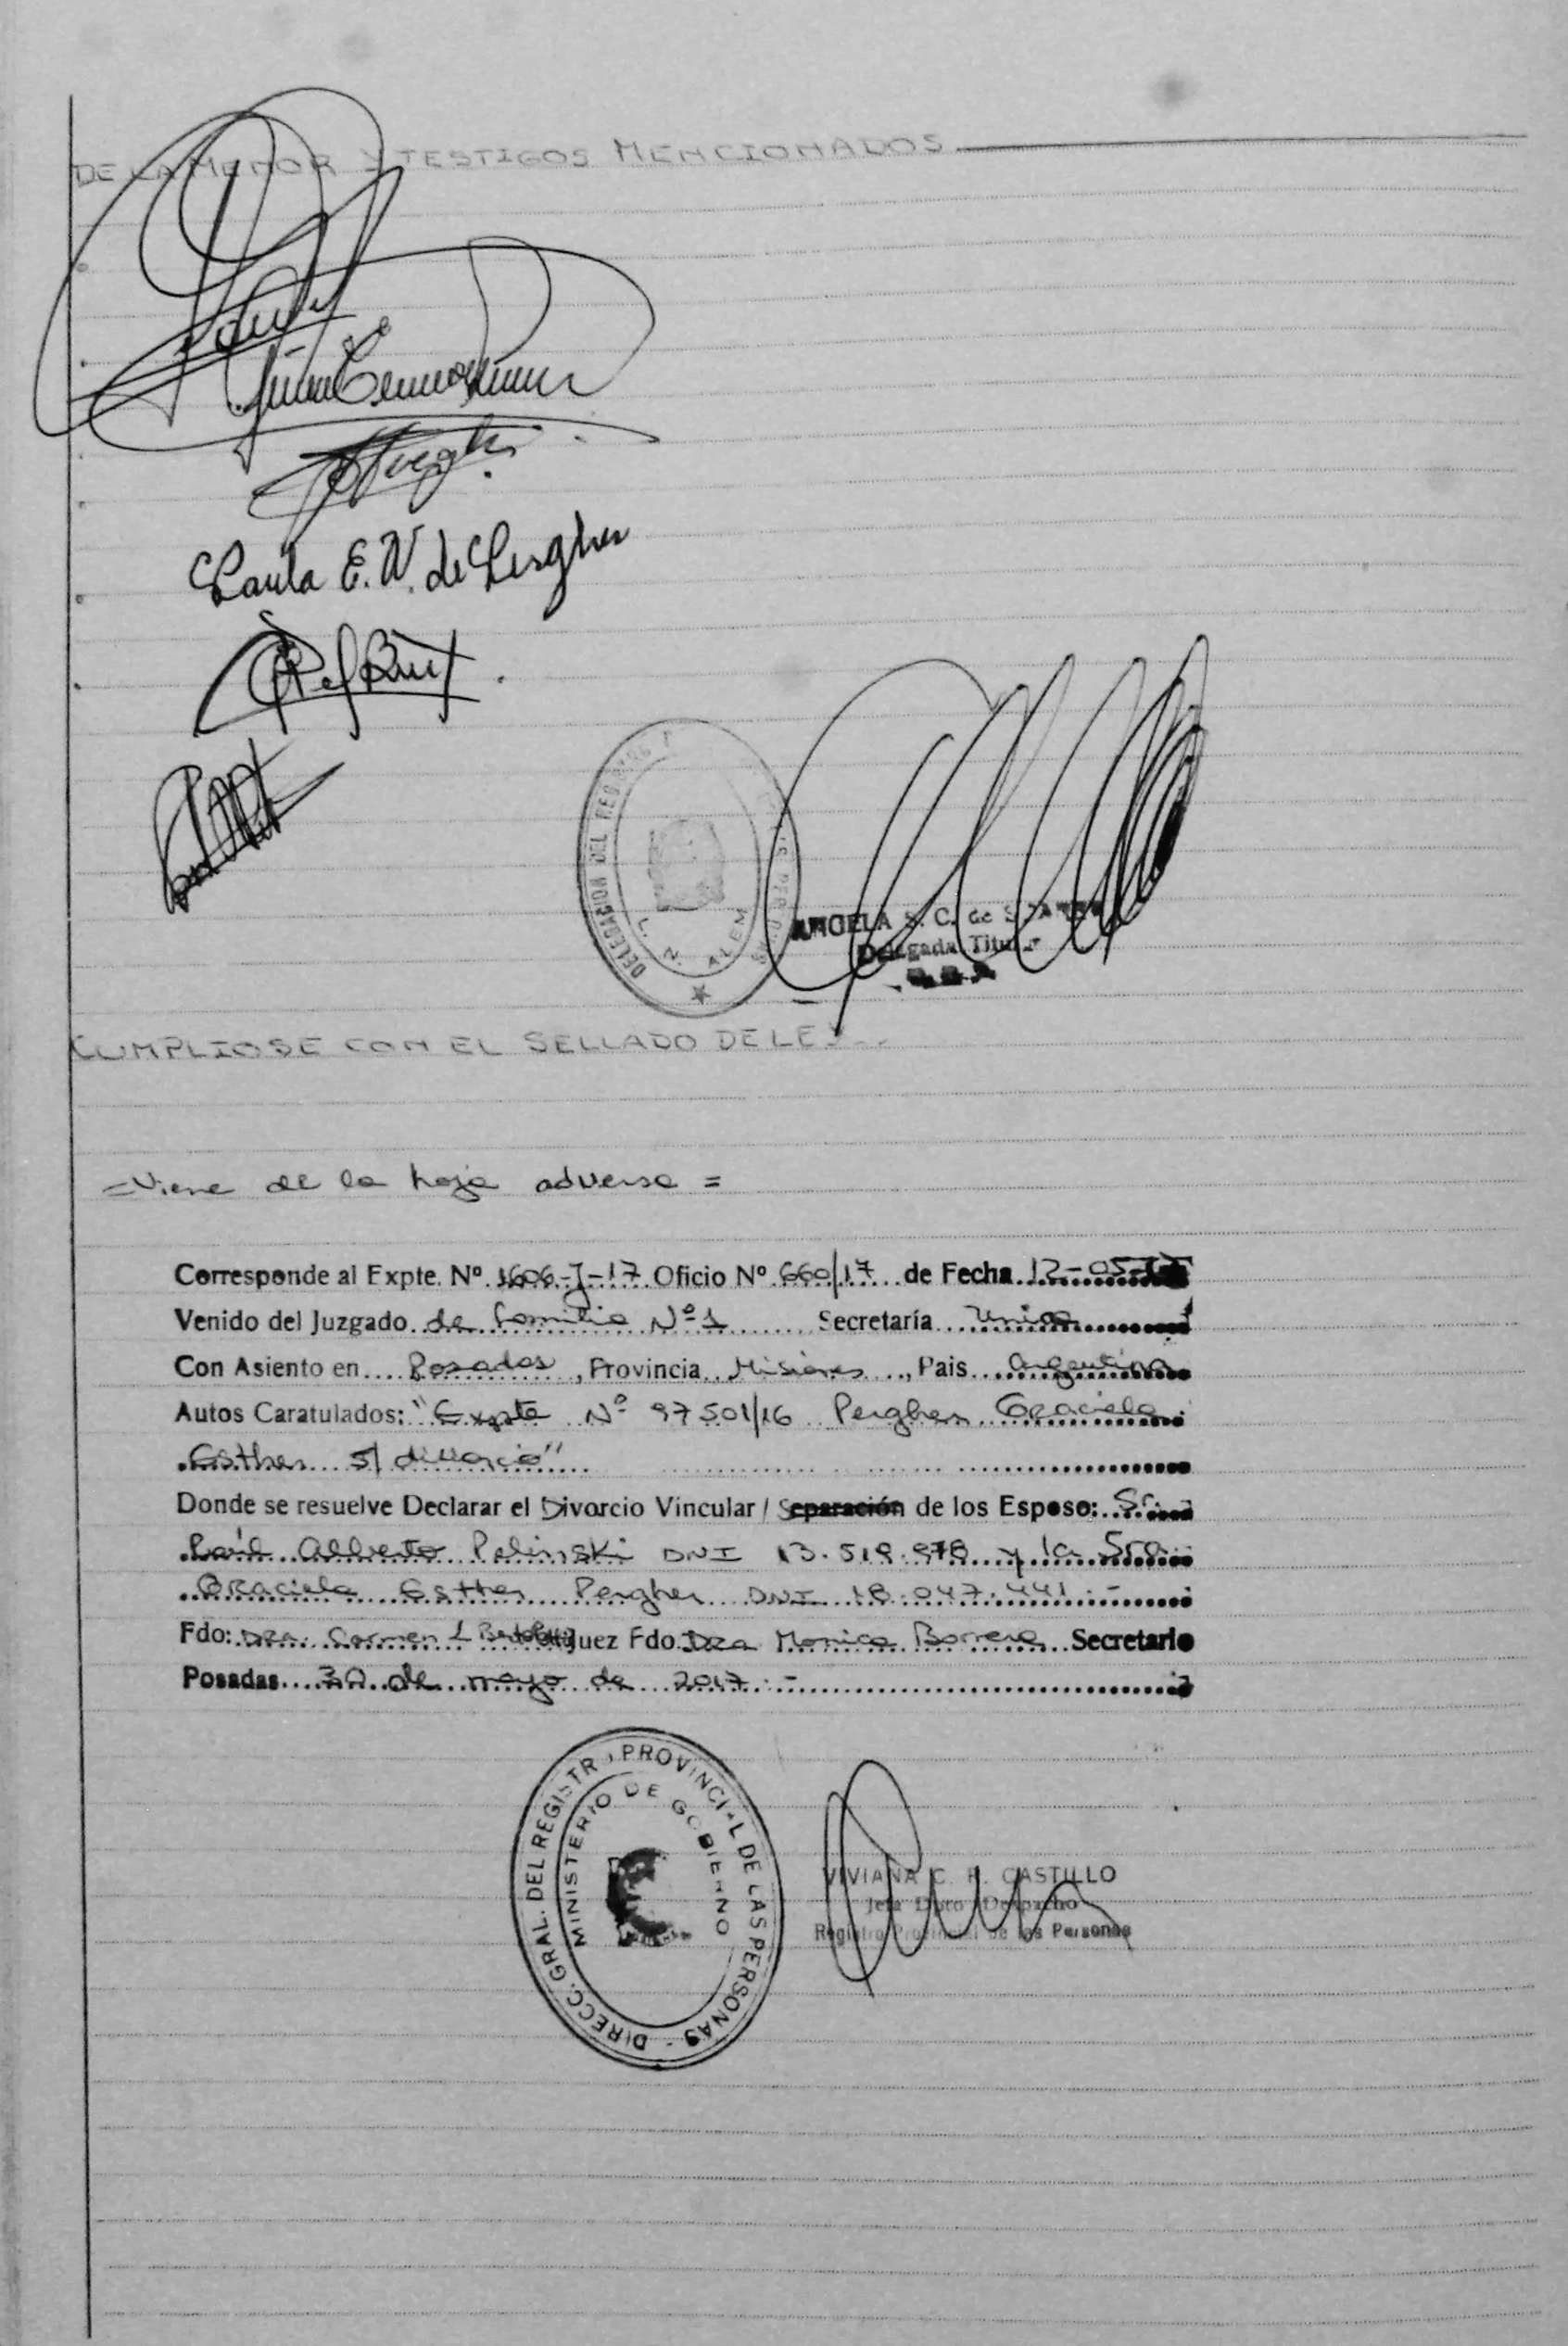 DE LA MENOR Y TESTIGOS MENCIONADOS
Paula E. N. de Pergher
DELEGACION DEL REGISTRO
L. N. ALEM
ANGELA S. C. de
Delegada Titular
CUMPLIOSE CON EL SELLADO DE LEY
=Viene de la hoja adversa =
Corresponde al Expte. Nº 1606-J-17 Oficio Nº 660/17 de Fecha 12-05-17
Venido del Juzgado de Familia Nº 1 Secretaría Unica
Con Asiento en Posadas, Provincia Misiones, Pais Argentina
Autos Caratulados: "Expte Nº 97501/16 Pergher Graciela
Esther S/ divorcio"
Donde se resuelve Declarar el Divorcio Vincular / Separación de los Esposo: Sr.
Raúl Alberto Pelinski DNI 13.519.978 y la Sra.
Graciela Esther Pergher DNI 18.047.441.-
Fdo: Dra. Carmen Juez Fdo. Dra Monica Borrero Secretario
Posadas 30 de mayo de 2017.-
DIRECC. GRAL. DEL REGISTRO PROVINCIAL DE LAS PERSONAS -
MINISTERIO DE GOBIERNO
VIVIANA C. R. CASTILLO
Jefa Dpto Despacho
Registro Provincial de las Personas